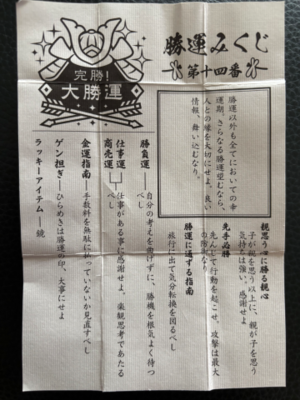 勝運みくじ
第十四番
完勝!
大勝運
勝運以外も全てにおいての幸
運期。さらなる勝運望むなら、
人との縁を大切にせよ。良い
情報、舞い込むなり。
親思う心に勝る親心
子が親を思う以上に、親が子を思う
気持ちは強い。感謝せよ
先手必勝
先んじて行動を起こせ。攻撃は最大
の防御なり
勝運に通ずる指南
旅行に出て気分転換を図るべし
勝負運
自分の考えを曲げずに、勝機を根気よく待つ
べし
仕事運
商売運
仕事がある事に感謝せよ。楽観思考であたる
べし
金運指南―手数料を無駄に払っていないか見直すべし
ゲン担ぎ―ひらめきは勝運の印、大事にせよ
ラッキーアイテム―鏡